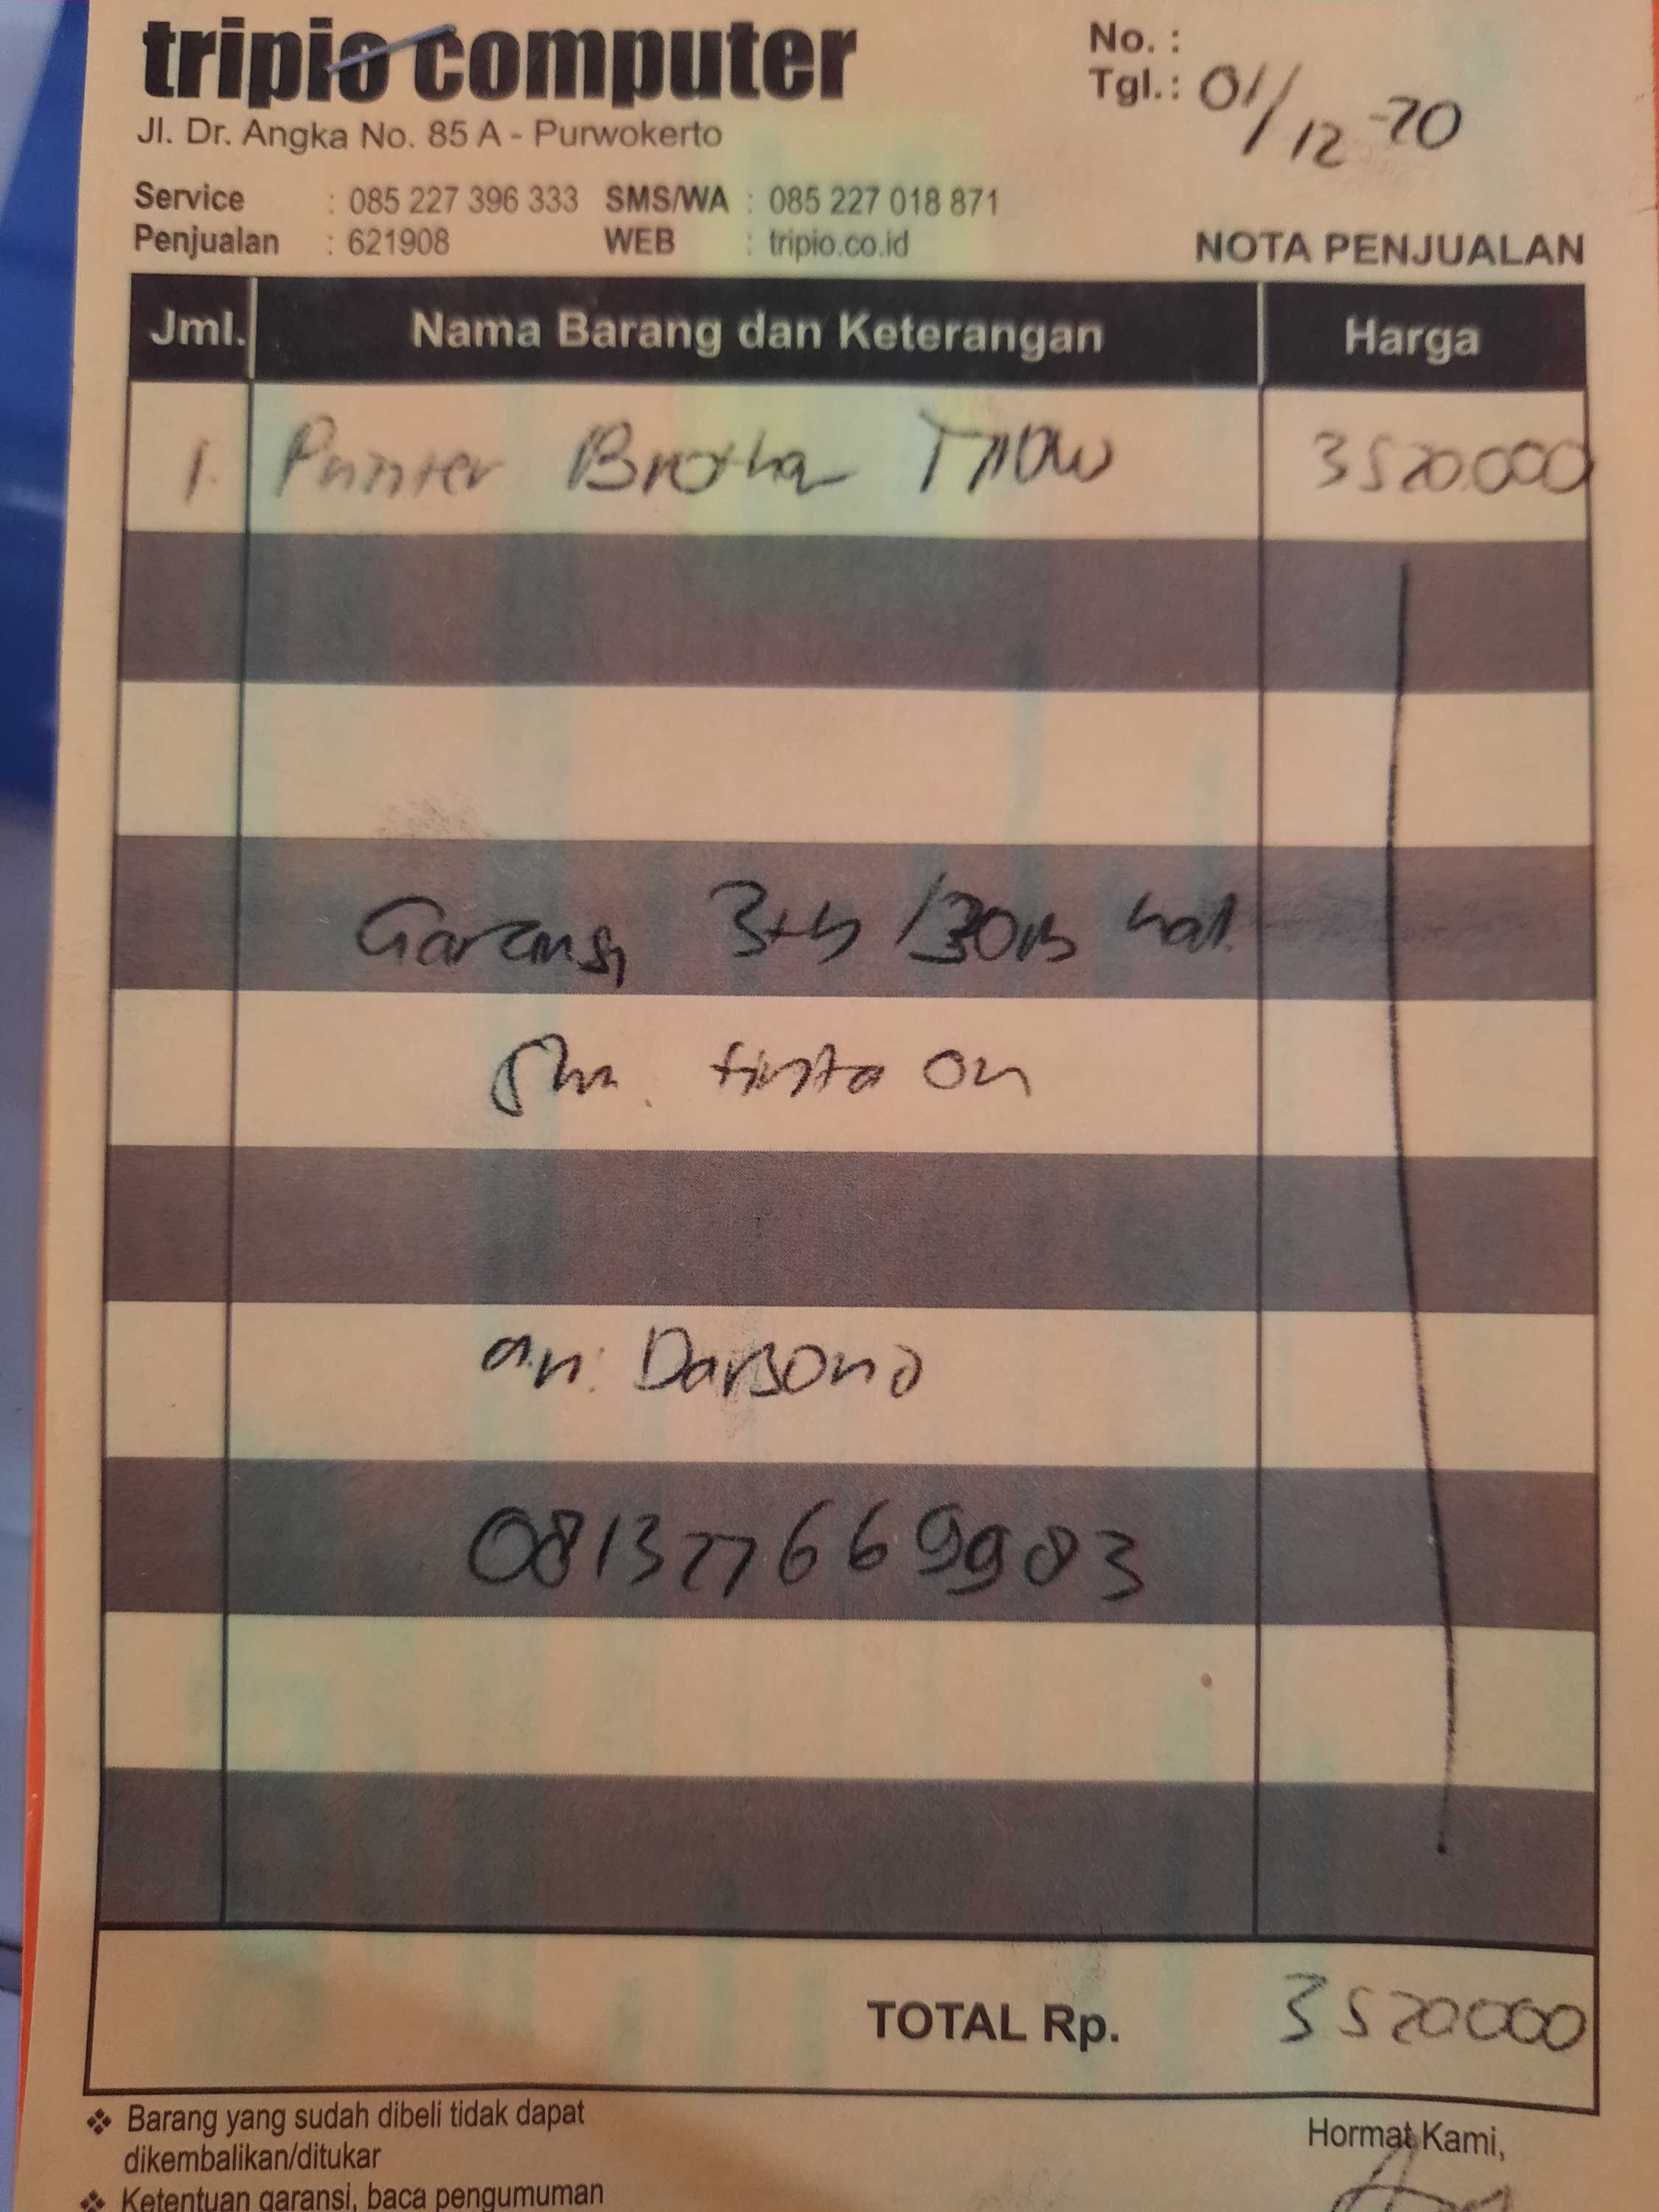 tripio computer
No. :
Tgl.: 01/12-20
Jl. Dr. Angka No. 85 A - Purwokerto
Service : 085 227 396 333 SMS/WA : 085 227 018 871
Penjualan : 621908 WEB : tripio.co.id
NOTA PENJUALAN
Jml. Nama Barang dan Keterangan Harga
1. Printer Brother 3520.000
Garansi 3th /30rb hal.
tinta on
a.n: Darsono
081327669983
TOTAL Rp. 3520000
❖ Barang yang sudah dibeli tidak dapat
dikembalikan/ditukar
Hormat Kami,
❖ Ketentuan garansi, baca pengumuman